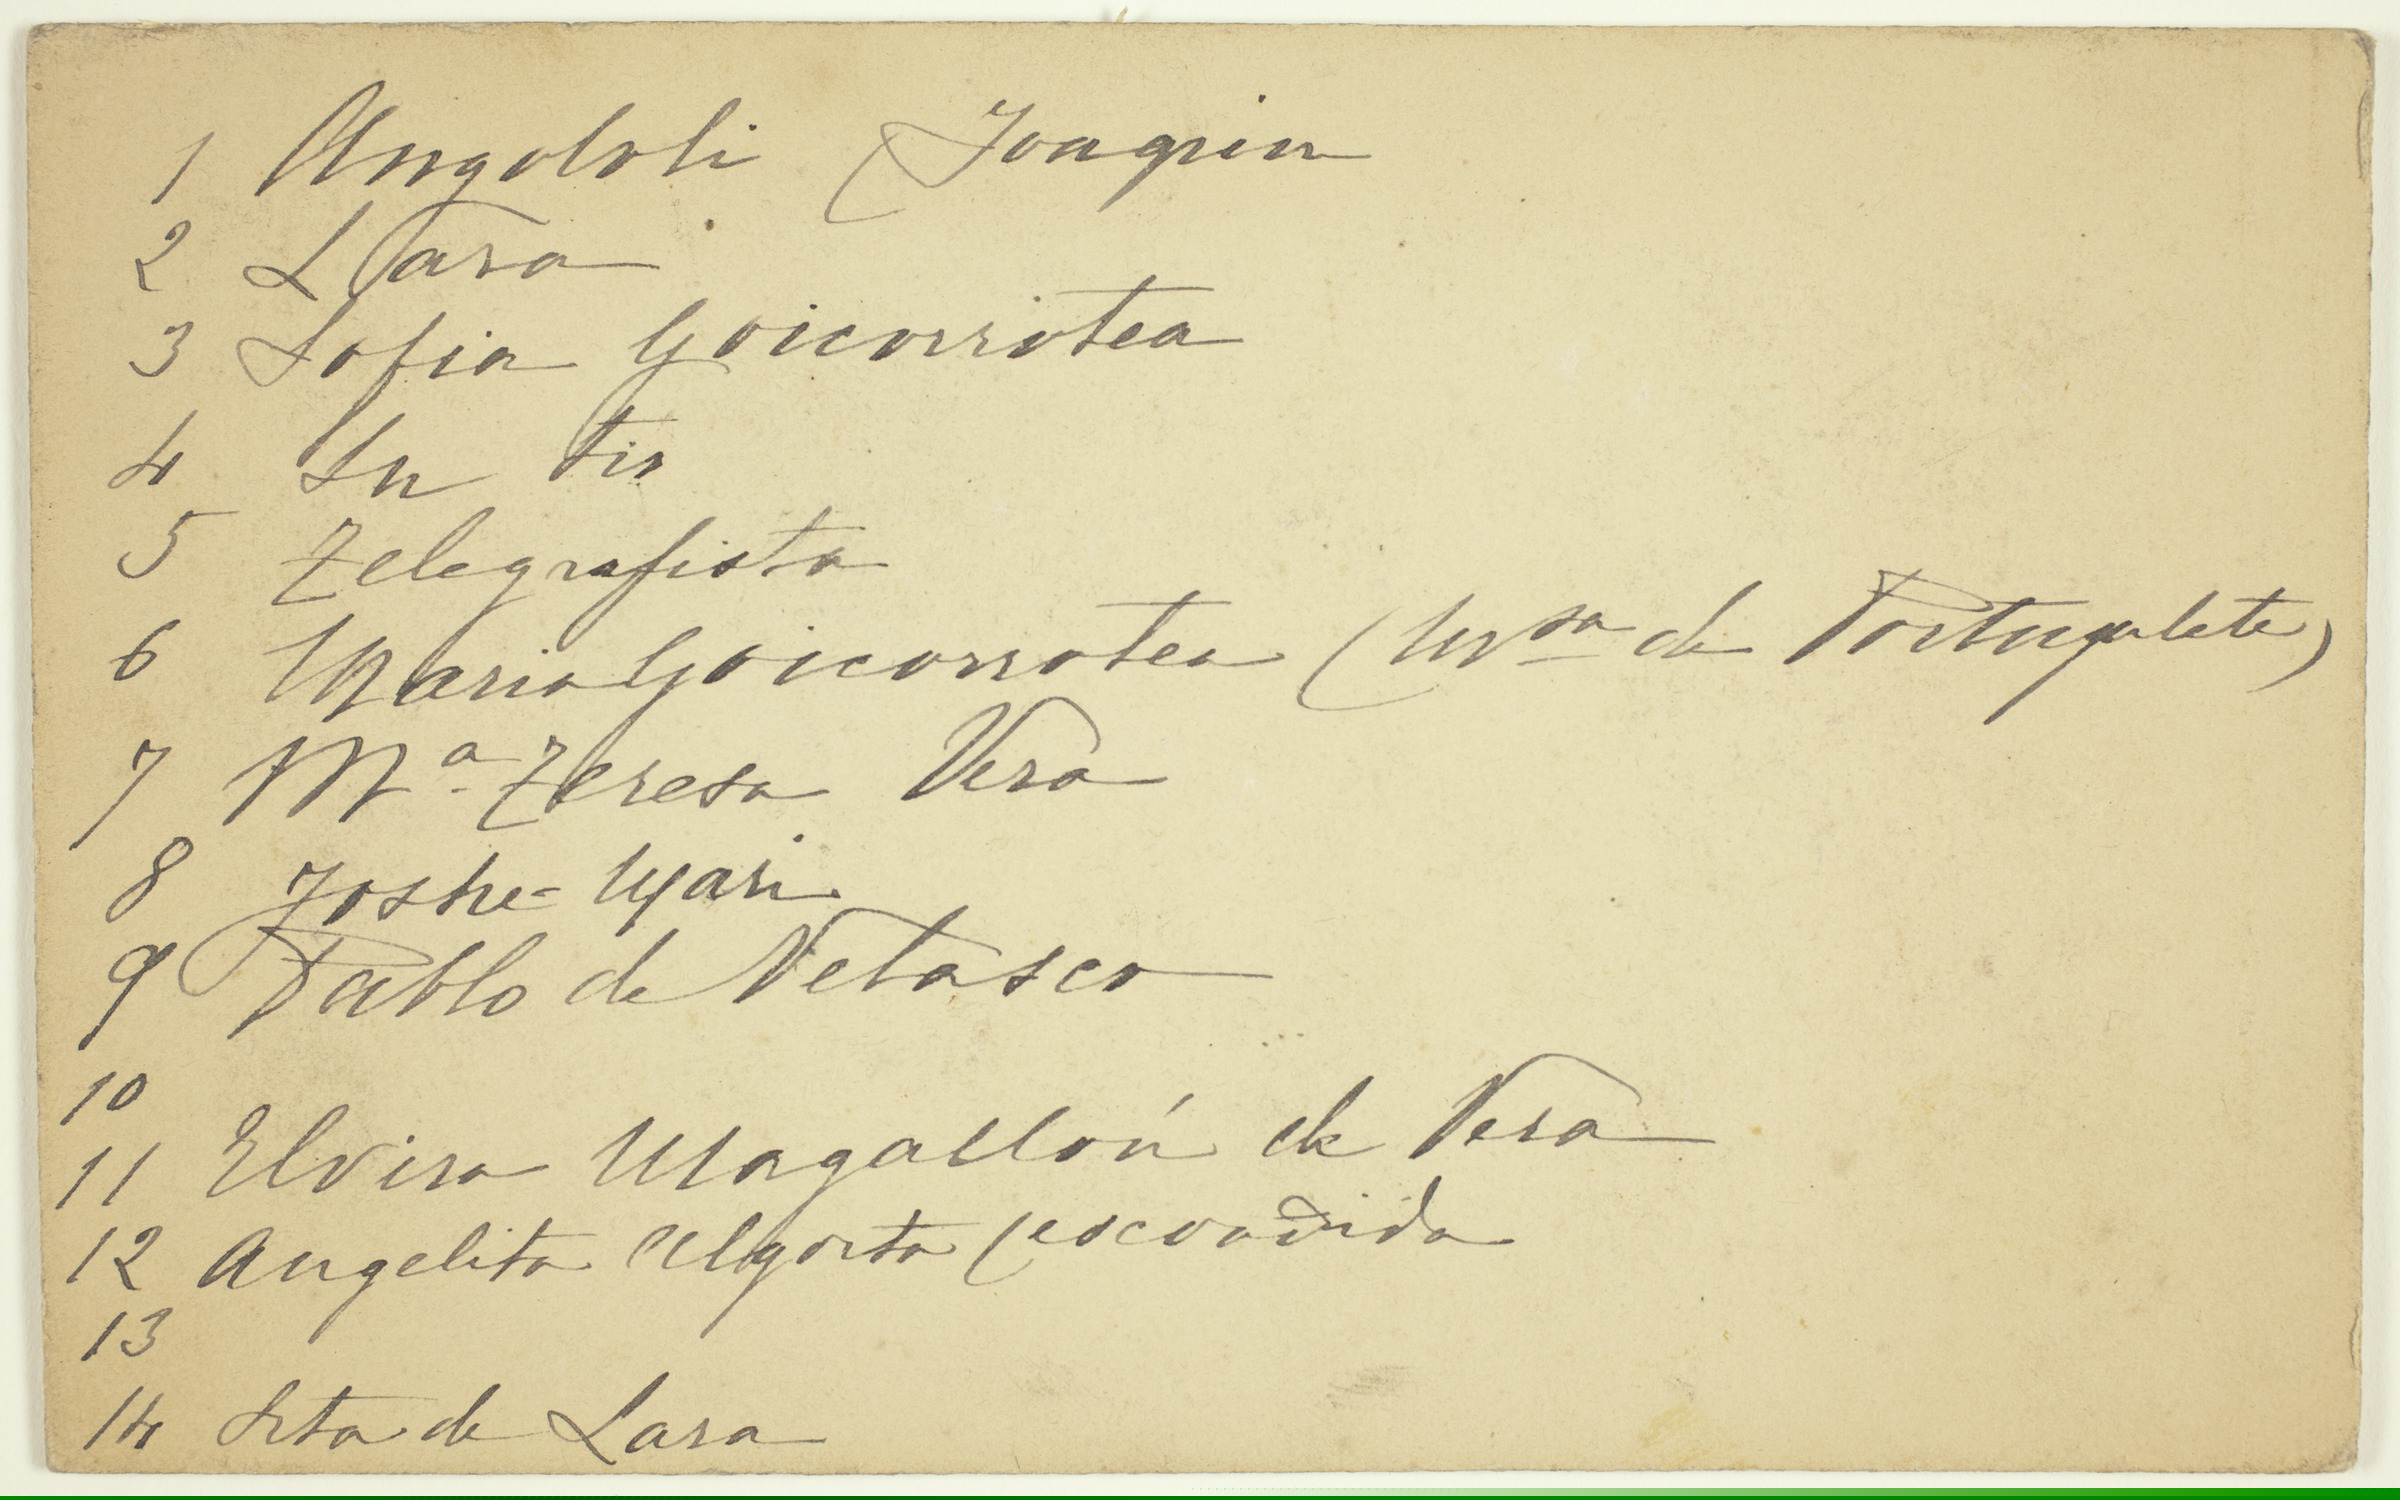 1 Angoloti (Joaquin
2 Lara
3 Sofia Goicorrotea
4 Su tio
5 Telegrafista
6 Maria Goicorrotea (Mrsa de Portugalete)
7 Mª Teresa Vera
8 Joshe-Mari
9 Pablo de Velasco
10
11 Elvira Magallón de Vera
12 Angelita Algorta (escondida
13
14 Srta de Lara